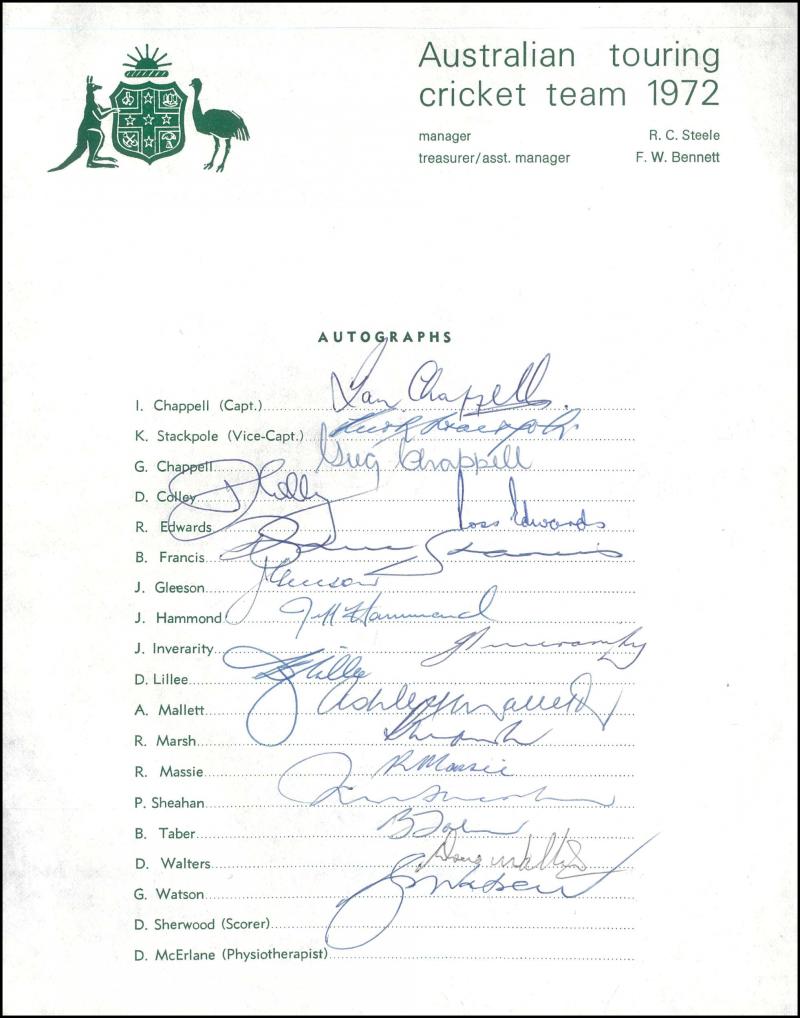 Australian touring
cricket team 1972
manager R. C. Steele
treasurer/asst. manager F. W. Bennett
AUTOGRAPHS
I. Chappell (Capt.) Ian Chappell
K. Stackpole (Vice-Capt.)
G. Chappell Greg Chappell
D. Colley D Colley
R. Edwards Ross Edwards
B. Francis Bruce Francis
J. Gleeson J Gleeson
J. Hammond Jeff Hammond
J. Inverarity J Inverarity
D. Lillee D Lillee
A. Mallett Ashley Mallett
R. Marsh
R. Massie R Massie
P. Sheahan
B. Taber B Taber
D. Walters Doug Walters
G. Watson G Watson
D. Sherwood (Scorer)
D. McErlane (Physiotherapist)